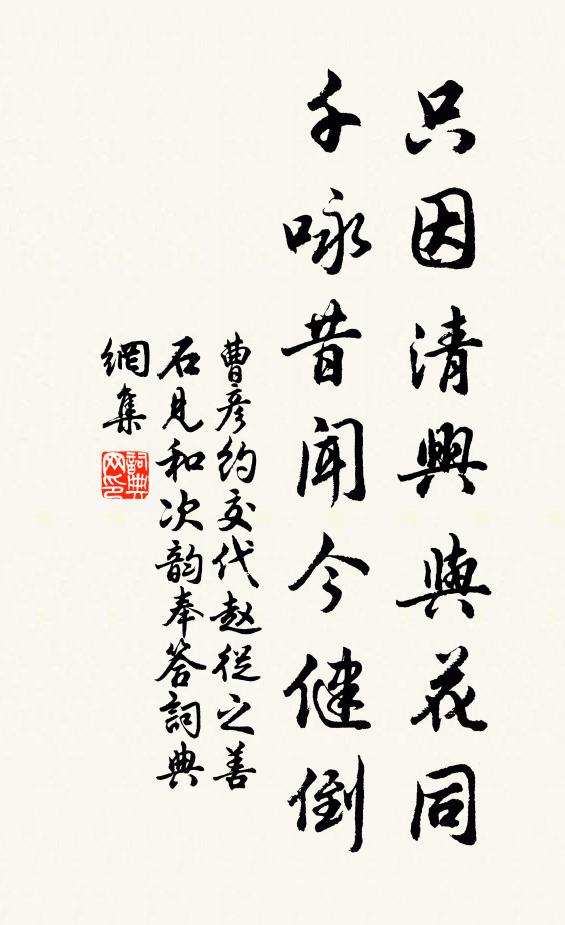 只因清興與花同
千咏昔聞今健倒
曹彦約交代赵從之善
石見和次韵奉答詞典
網集
詞典网印